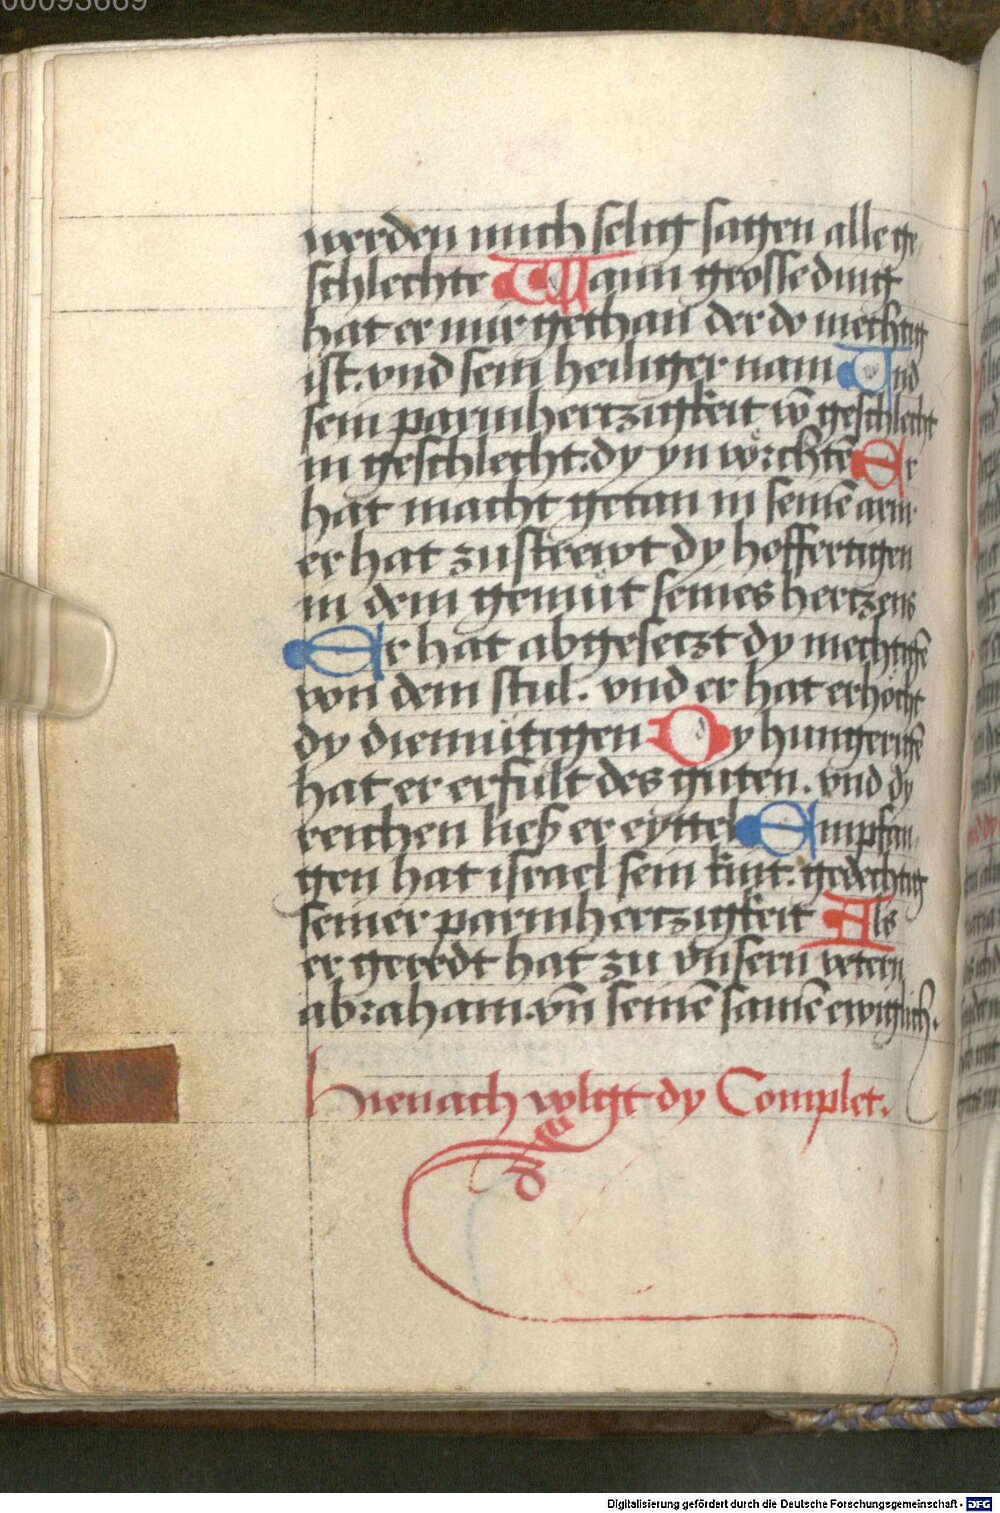 00093669
werden mich selig sagen alle ge,
schlechte Wann grosse ding
hat er mir gethan der do mechtig
ist. vnd sein heiliger nam Vnd
sein parmhertzigkeit vō geschlecht
in geschlecht: dy yn vörchtē Er
hat macht getan in seinē arm
er hat zustrewt dy hoffertigen
in dem gemüt seines hertzens
Er hat abgesetzt dy mechtigē
von dem stul. vnd er hat erhöcht
dy diemütigen Dy hungerigē
hat er erfült des guten. vnd dy
reichen ließ er eyttel Empfan,
gen hat israel sein kint. gedechtig
seiner parmhertzigkeit Als
er geredt hat zu vnsern vetern
abraham. vn̄ seinē samē ewiglich.
Hienach volgt dy Complet.
Digitalisierung gefördert durch die Deutsche Forschungsgemeinschaft - DFG